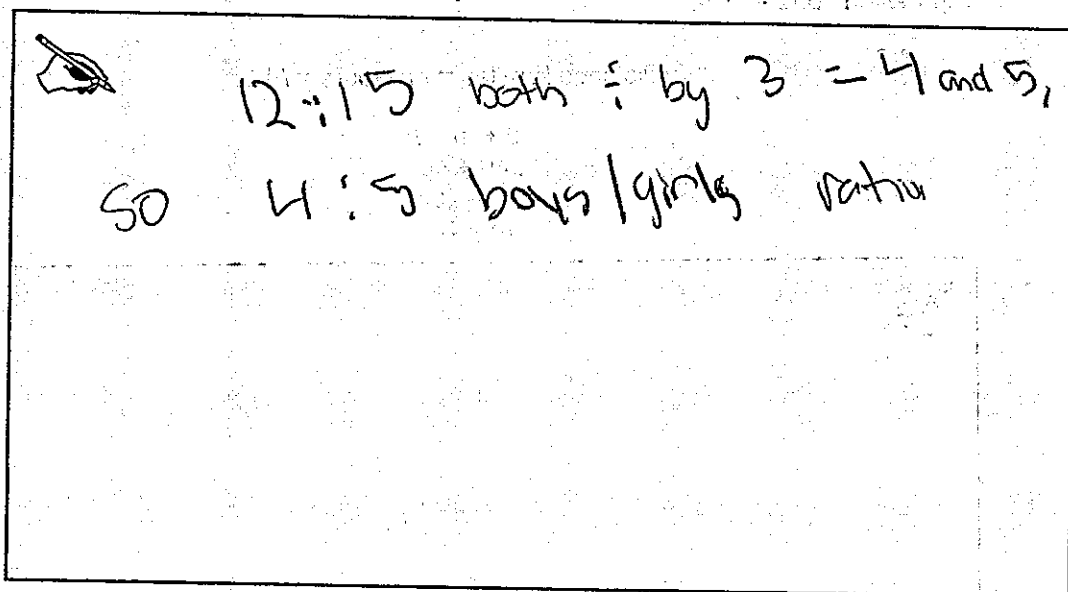 12:15 both ÷ by 3 = 4 and 5,
so 4:5 boys/girls ratio